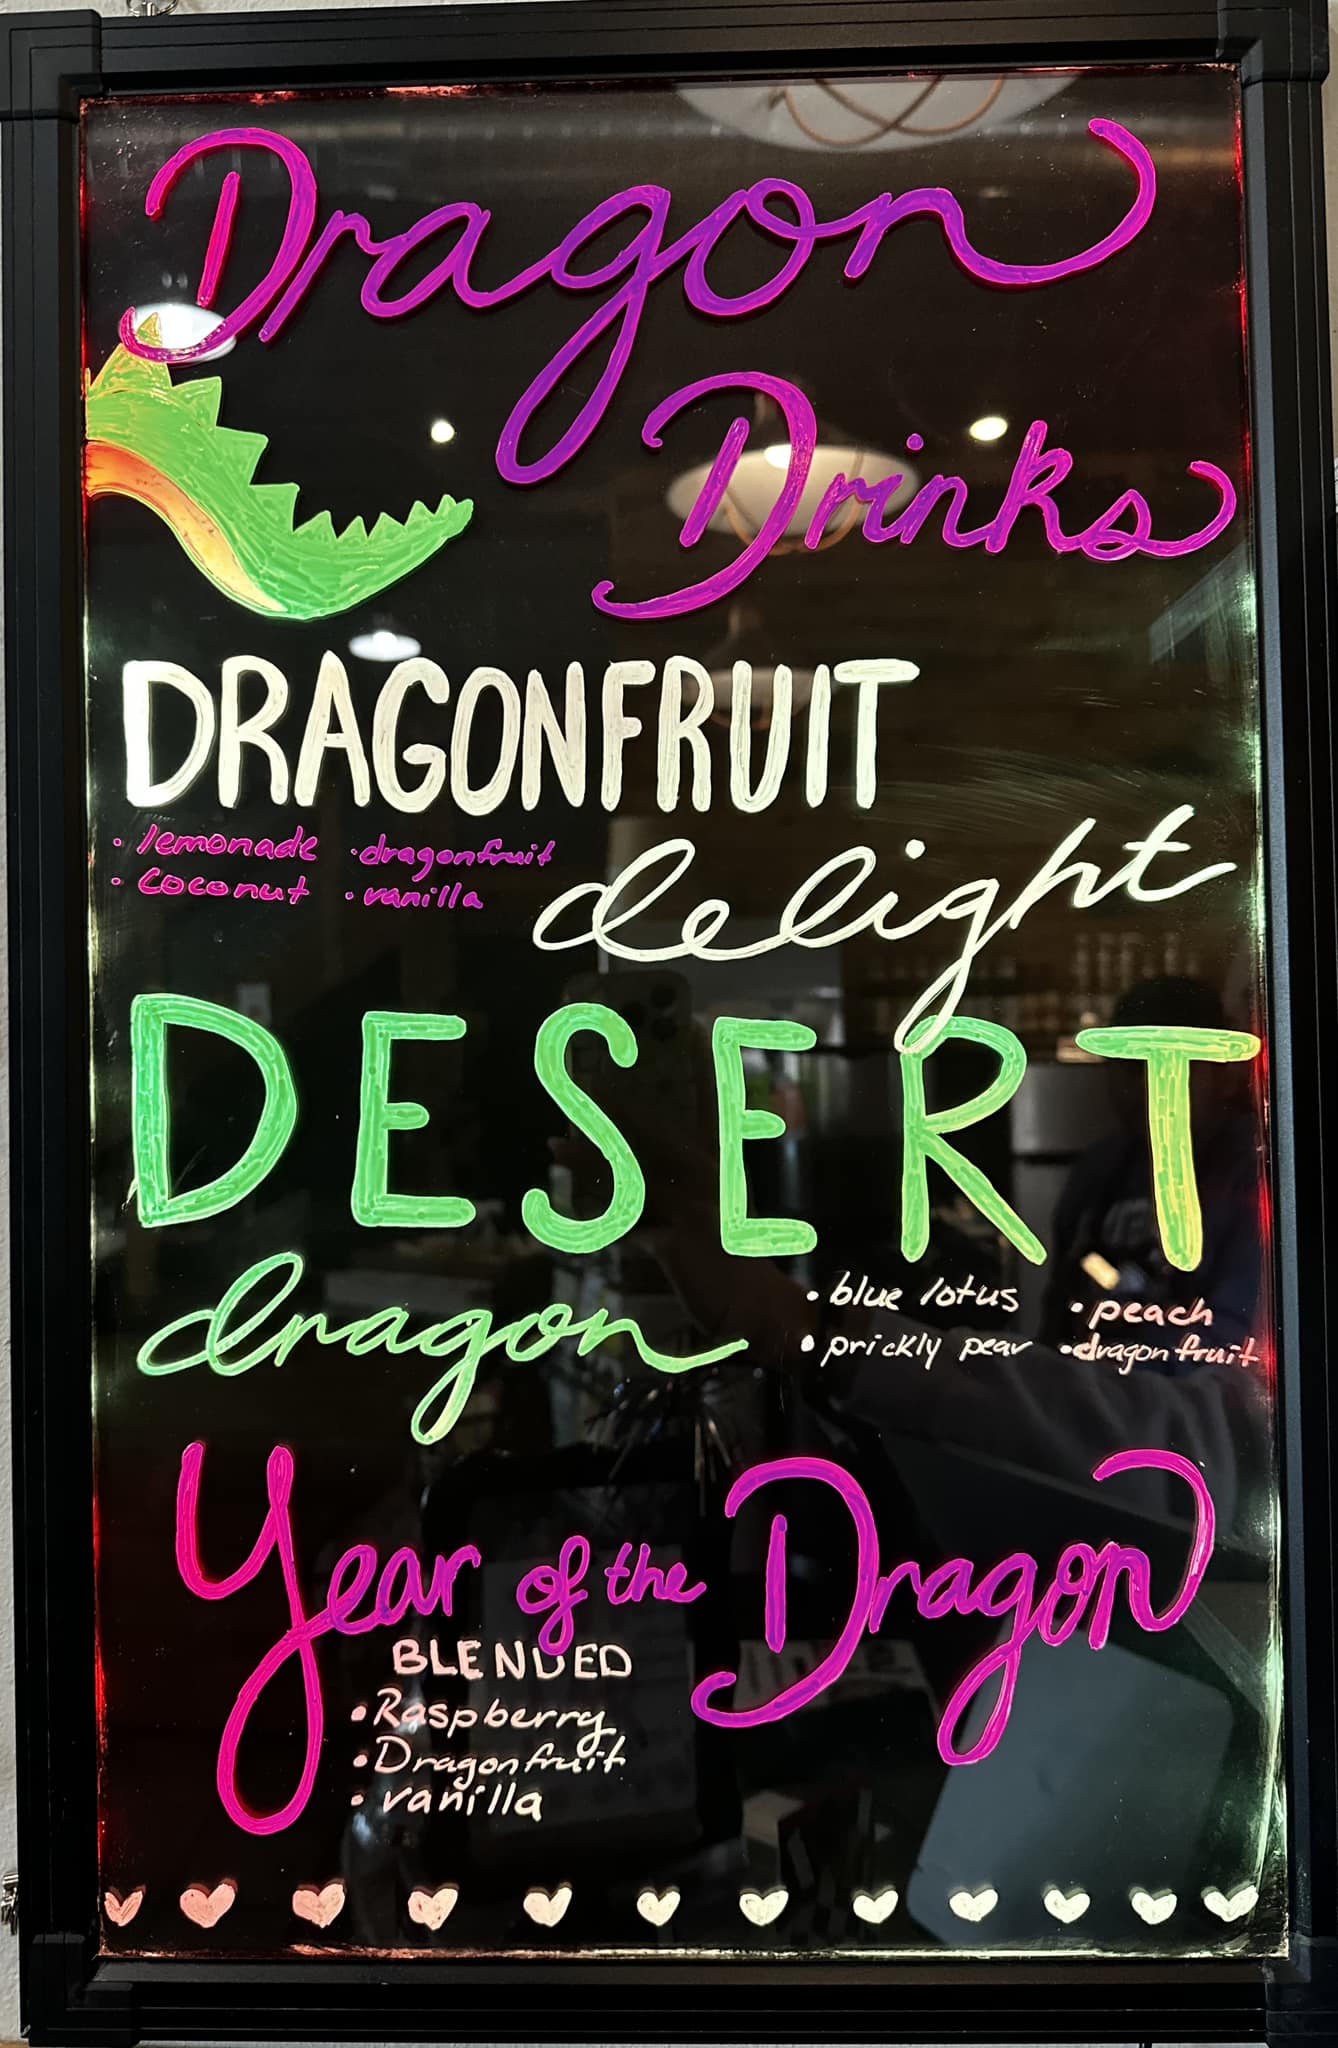 Dragon
Drinks
DRAGONFRUIT
• lemonade • dragonfruit
• coconut • vanilla
delight
DESERT
dragon
• blue lotus • peach
• prickly pear • dragonfruit
Year of the Dragon
BLENDED
• Raspberry
• Dragonfruit
• vanilla